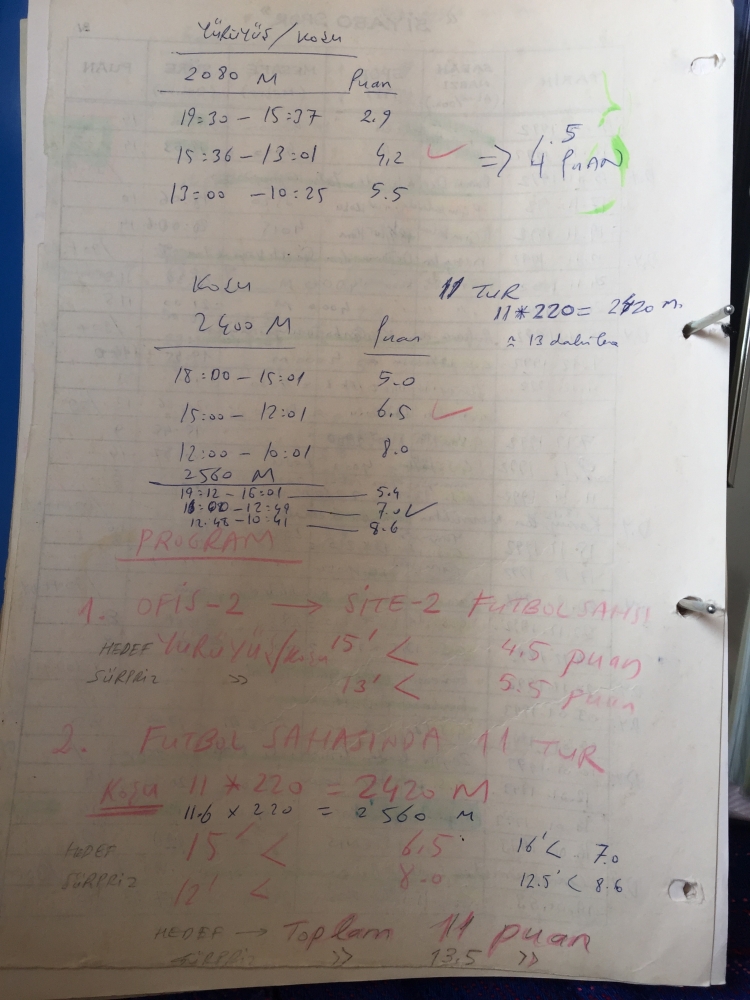 YÜRÜYÜŞ / KOŞU
2080 M Puan
19:30 – 15:37 2.9
15:36 – 13:01 4.2 ✓ => 4.5 PUAN
13:00 – 10:25 5.5
KOŞU
11 TUR
11 * 220 = 2420 m.
2400 M Puan
≈ 13 dakika
18:00 – 15:01 5.0
15:00 – 12:01 6.5 ✓
12:00 – 10:01 8.0
2560 M
19:12 – 16:01 5.4
16:00 – 12:49 7.0 ✓
12:48 – 10:41 8.6
PROGRAM
1. OFİS-2 → SİTE-2 FUTBOL SAHASI
HEDEF YÜRÜYÜŞ/KOŞU 15' < 4.5 puan
SÜRPRİZ » 13' < 5.5 puan
2. FUTBOL SAHASINDA 11 TUR
KOŞU 11 * 220 = 2420 M
11.6 x 220 = 2560 M
HEDEF 15' < 6.5 16' < 7.0
SÜRPRİZ 12' < 8.0 12.5' < 8.6
HEDEF → Toplam 11 puan
SÜRPRİZ » 13.5 »